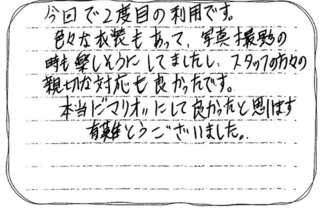 今回で2度目の利用です。
色々な衣装もあって、写真撮影の
時も楽しそうにしてましたし、スタッフの方々の
親切な対応も良かったです。
本当にマリオにして良かったと思います
有難とうございました。